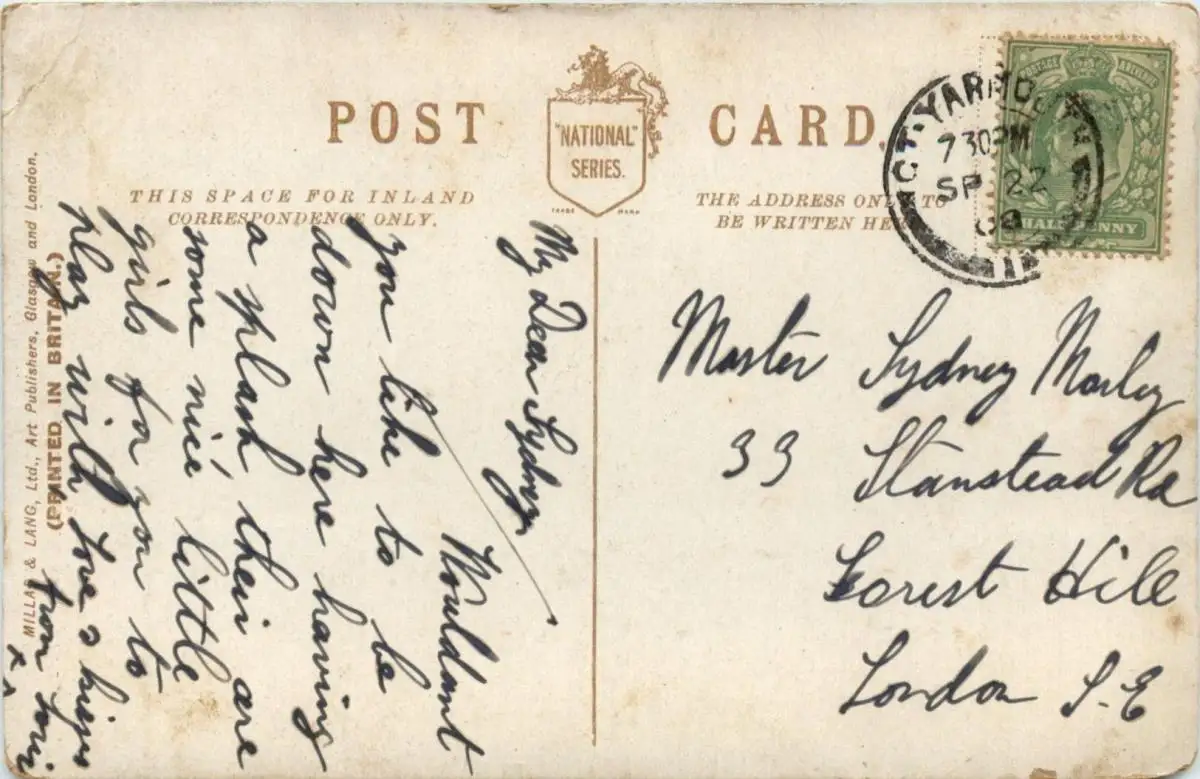 POST CARD.
"NATIONAL"
SERIES.
TRADE MARK
THIS SPACE FOR INLAND
CORRESPONDENCE ONLY.
THE ADDRESS ONLY TO
BE WRITTEN HE
MILLAR & LANG, Ltd., Art Publishers, Glasgow and London.
(PRINTED IN BRITAIN.)
My Dear Sydney
Wouldant
you like to be
down here having
a splash their are
some nice little
girls for you to
play with love & kisses
from
x x
Master Sydney Morley
33 Stanstead Rd
Forest Hill
London S.E
GT. YARMOUTH
7 30PM
SP 22
08
POSTAGE
HALFPENNY